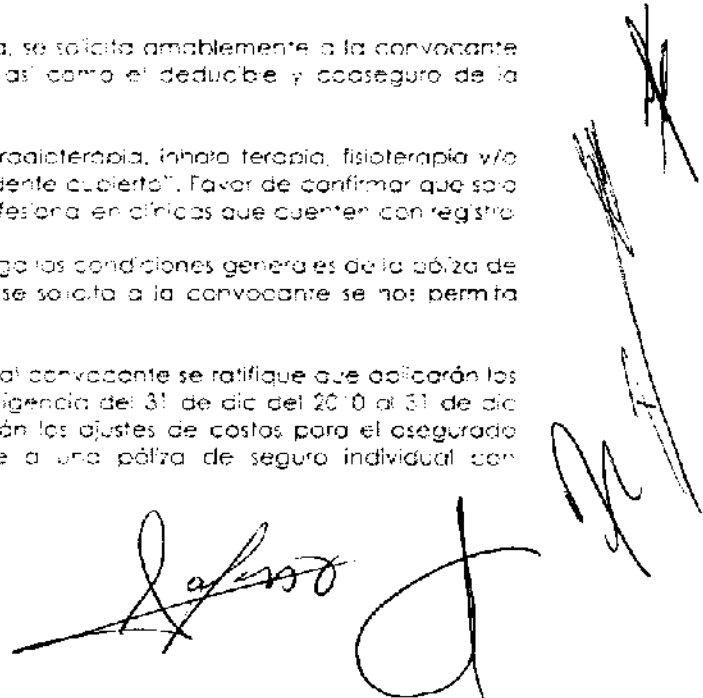 a, se solicita amablemente a la convocante
así como el deducible y coaseguro de la
radioterapia, inhalo terapia, fisioterapia y/o
dente cubierto". Favor de confirmar que solo
fesional en clínicas que cuenten con registro
ga las condiciones generales de la póliza de
se solicita a la convocante se nos permita
al convocante se ratifique que aplicarán los
igencia del 31 de dic del 2010 al 31 de dic
án los ajustes de costos para el asegurado
e a una póliza de seguro individual con